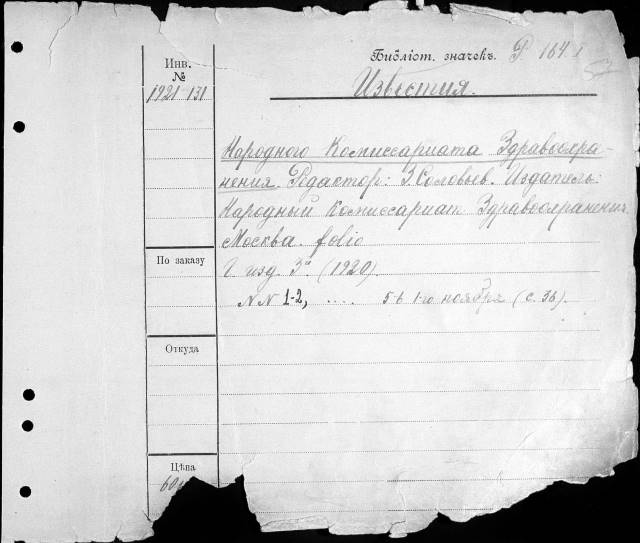 Библіот. значекъ. Р 164.1
Инв.
№
Известия.
1921 131
Народного Комиссариата Здравоохра-
нения. Редактор: З Соловьев. Издатель:
Народный Комиссариат Здравоохранения.
Москва. folio
Г. изд. 3й (1920).
По заказу
NN 1-2, .... 5-6 1-го ноября (с. 36).
Откуда
Цѣна
60